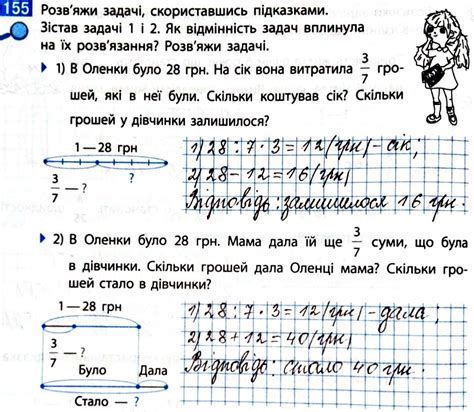 155 Розв'яжи задачі, скориставшись підказками.
Зістав задачі 1 і 2. Як відмінність задач вплинула
на їх розв'язання? Розв'яжи задачі.
1) В Оленки було 28 грн. На сік вона витратила 3/7 гро-
шей, які в неї були. Скільки коштував сік? Скільки
грошей у дівчинки залишилося?
1 — 28 грн
3/7 — ?
?
1) 28 : 7 · 3 = 12 (грн) - сік;
2) 28 - 12 = 16 (грн)
Відповідь: залишилося 16 грн.
2) В Оленки було 28 грн. Мама дала їй ще 3/7 суми, що була
в дівчинки. Скільки грошей дала Оленці мама? Скільки гро-
шей стало в дівчинки?
1 — 28 грн
3/7 — ?
Було Дала
Стало — ?
1) 28 : 7 · 3 = 12 (грн) - дала;
2) 28 + 12 = 40 (грн)
Відповідь: стало 40 грн.